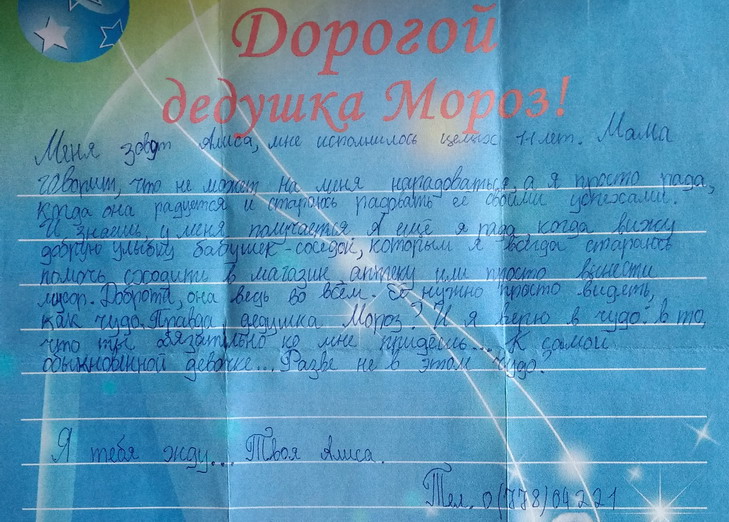 Дорогой
дедушка Мороз!
Меня зовут Алиса, мне исполнилось целых 11 лет. Мама
говорит, что не может на меня нарадоваться, а я просто рада,
когда она радуется и стараюсь радовать её своими успехами.
И знаешь, у меня получается. А ещё я рада, когда вижу
добрую улыбку бабушек-соседок, которым я всегда стараюсь
помочь сходить в магазин аптеку или просто вынести
мусор. Доброта, она ведь во всём. Её нужно просто видеть,
как чудо. Правда, дедушка Мороз? И я верю в чудо: в то,
что ты обязательно ко мне придёшь... К самой
обыкновенной девочке... Разве не в этом чудо?
Я тебя жду... Твоя Алиса.
Тел. 0(778)04221